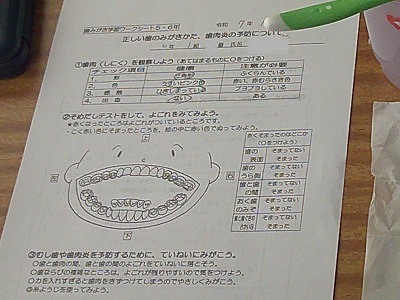 歯みがき学習ワークシート5・6年
令和 7年
正しい歯のみがきかた、歯肉炎の予防について
年 組 番 氏名
①歯肉（しにく）を観察しよう（あてはまるものに○をつける）
チェック項目 健康 注意が必要
1. 形 三角形 ふくらんでいる
2. 色 うすいピンク色 赤い、赤むらさき色
3. 感触 ひきしまっている ブヨブヨしている
4. 出血 ない ある
②そめだしテストをして、よごれをみてみよう。
★赤くなったところはよごれがついているところです。
・こく赤い色にそまったところを、絵の中に赤い色でぬってみよう。
赤くそまったのはどこか
（○をつけよう）
歯の表面 そまってない そまった
歯のうら側 そまってない そまった
歯と歯の間 そまってない そまった
おく歯のみぞ そまってない そまった
そまってない そまった
上
右
左
下
③むし歯や歯肉炎を予防するために、ていねいにみがこう。
○歯と歯肉の間、歯と歯の間のよごれをていねいに落とそう。
○歯ならびの複雑なところは、よごれが残りやすいので気をつけよう。
○力を入れすぎると歯肉をきずつけてしまうのでやさしくみがこう。
○糸ようじを使ってみよう。